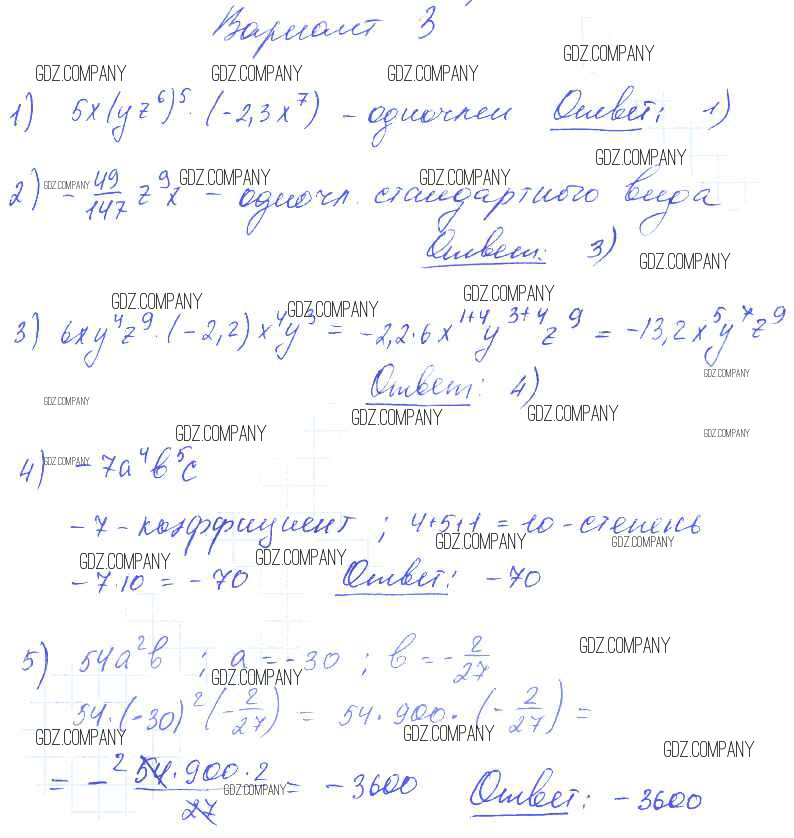 Вариант 3
GDZ.COMPANY
GDZ.COMPANY GDZ.COMPANY GDZ.COMPANY
1) 5x(yz⁶)⁵·(-2,3x⁷) - одночлен Ответ: 1)
GDZ.COMPANY
GDZ.COMPANY GDZ.COMPANY GDZ.COMPANY
2) -49/147 z⁹x - одночл. стандартного вида
Ответ: 3)
GDZ.COMPANY
GDZ.COMPANY GDZ.COMPANY GDZ.COMPANY
3) 6xy⁴z⁹·(-2,2)x⁴y³ = -2,2·6x¹⁺⁴y³⁺⁴z⁹ = -13,2x⁵y⁷z⁹
GDZ.COMPANY
Ответ: 4)
GDZ.COMPANY GDZ.COMPANY GDZ.COMPANY
GDZ.COMPANY GDZ.COMPANY
4) -7a⁴b⁵c
GDZ.COMPANY
-7 - коэффициент ; 4+5+1 = 10 - степень
GDZ.COMPANY GDZ.COMPANY
GDZ.COMPANY GDZ.COMPANY
-7·10 = -70 Ответ: -70
GDZ.COMPANY
5) 54a²b ; a = -30 ; b = -2/27
GDZ.COMPANY
54·(-30)²(-2/27) = 54·900·(-2/27) =
GDZ.COMPANY GDZ.COMPANY GDZ.COMPANY
= - ² 54·900·2/27 = -3600 Ответ: -3600
GDZ.COMPANY